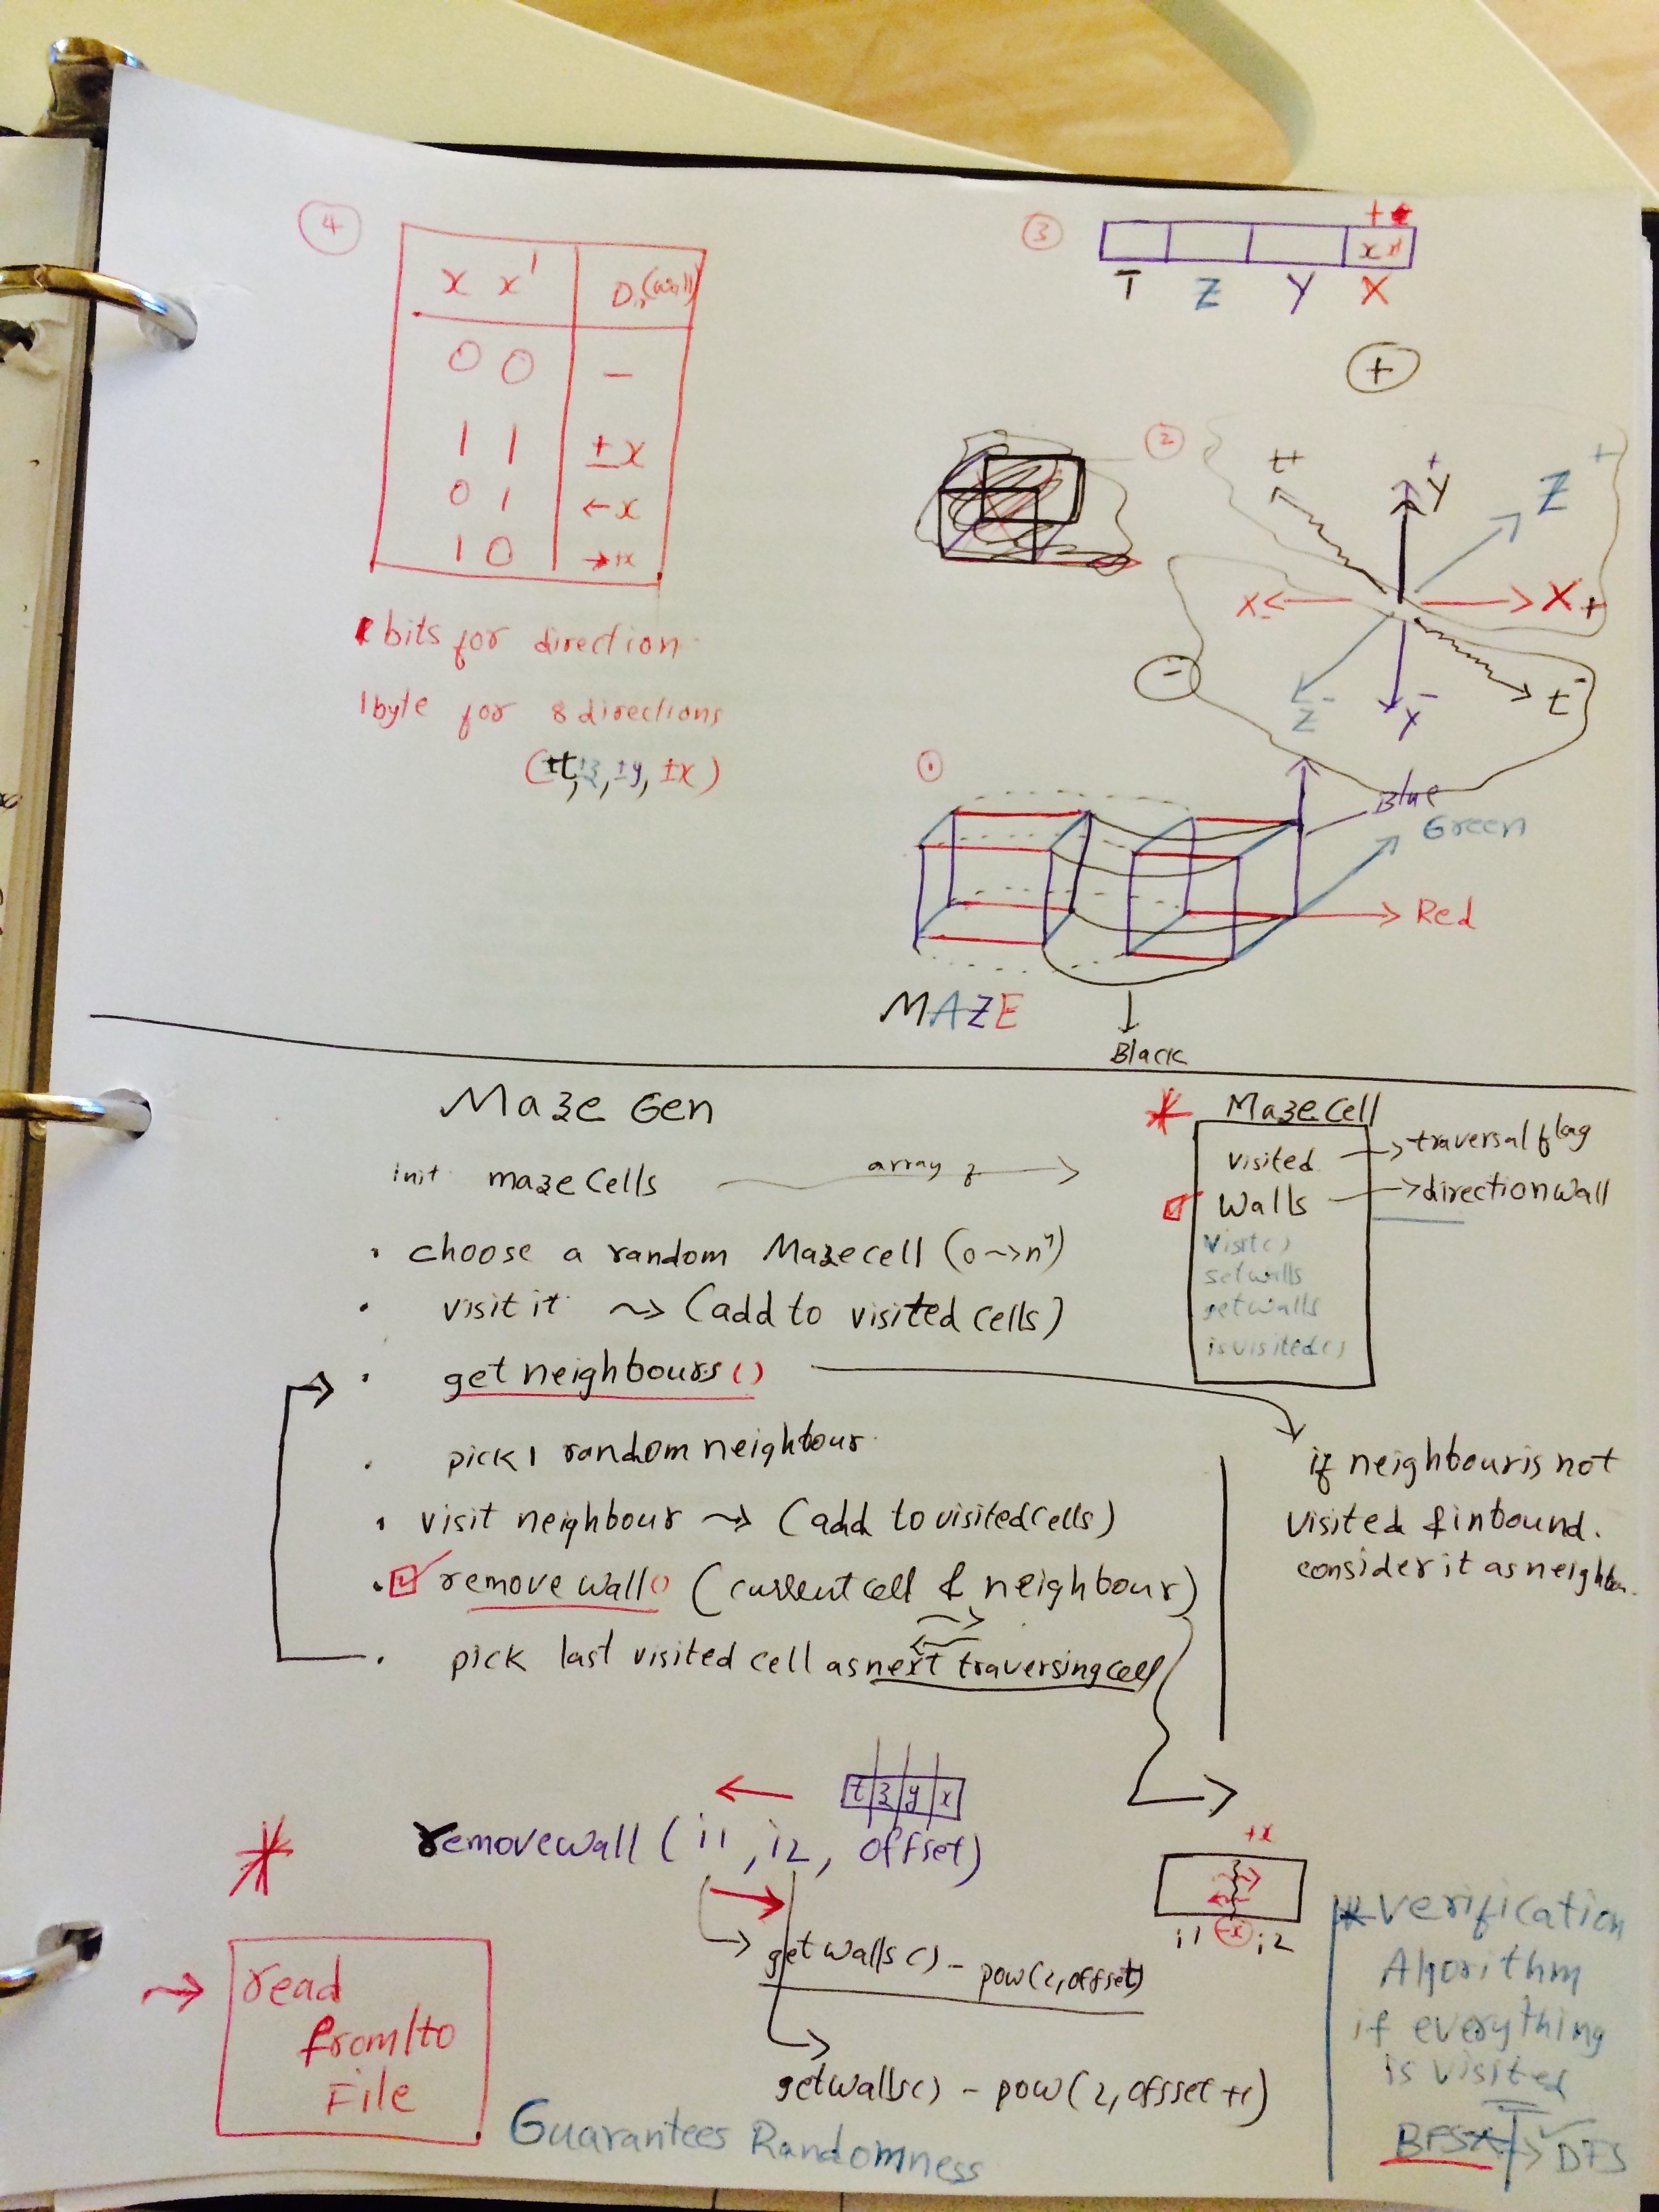 ④
x x' Dir(wall)
0 0 –
1 1 ± x
0 1 ← x
1 0 → +x
bits for direction
1 byte for 8 directions
(±t, ±z, ±y, ±x)
③
+
x x'
T Z Y X
+
②
t+ +Y Z+
X- X+
-
Z- Y- t-
①
Blue
Green
Red
MAZE
Black
Maze Gen
* MazeCell
init mazeCells array of
visited → traversal flag
Walls → direction wall
visit()
setwalls
getwalls
isvisited()
• choose a random Mazecell (0 ~> n⁴)
• visit it ~> (add to visited cells)
• get neighbours()
if neighbour is not
visited & inbound.
consider it as neighbou.
• pick 1 random neighbour.
• visit neighbour ~> (add to visited cells)
• remove wall() (current cell & neighbour)
• pick last visited cell as next traversing cell
t z y x
* removewall (i1, i2, offset)
getwalls() - pow(2,offset)
getwalls() - pow(2, offset +1)
+x
i1 -x i2
→ read
from/to
File
* Verification
Algorithm
if everything
is visited
BFS → DFS
Guarantees Randomness